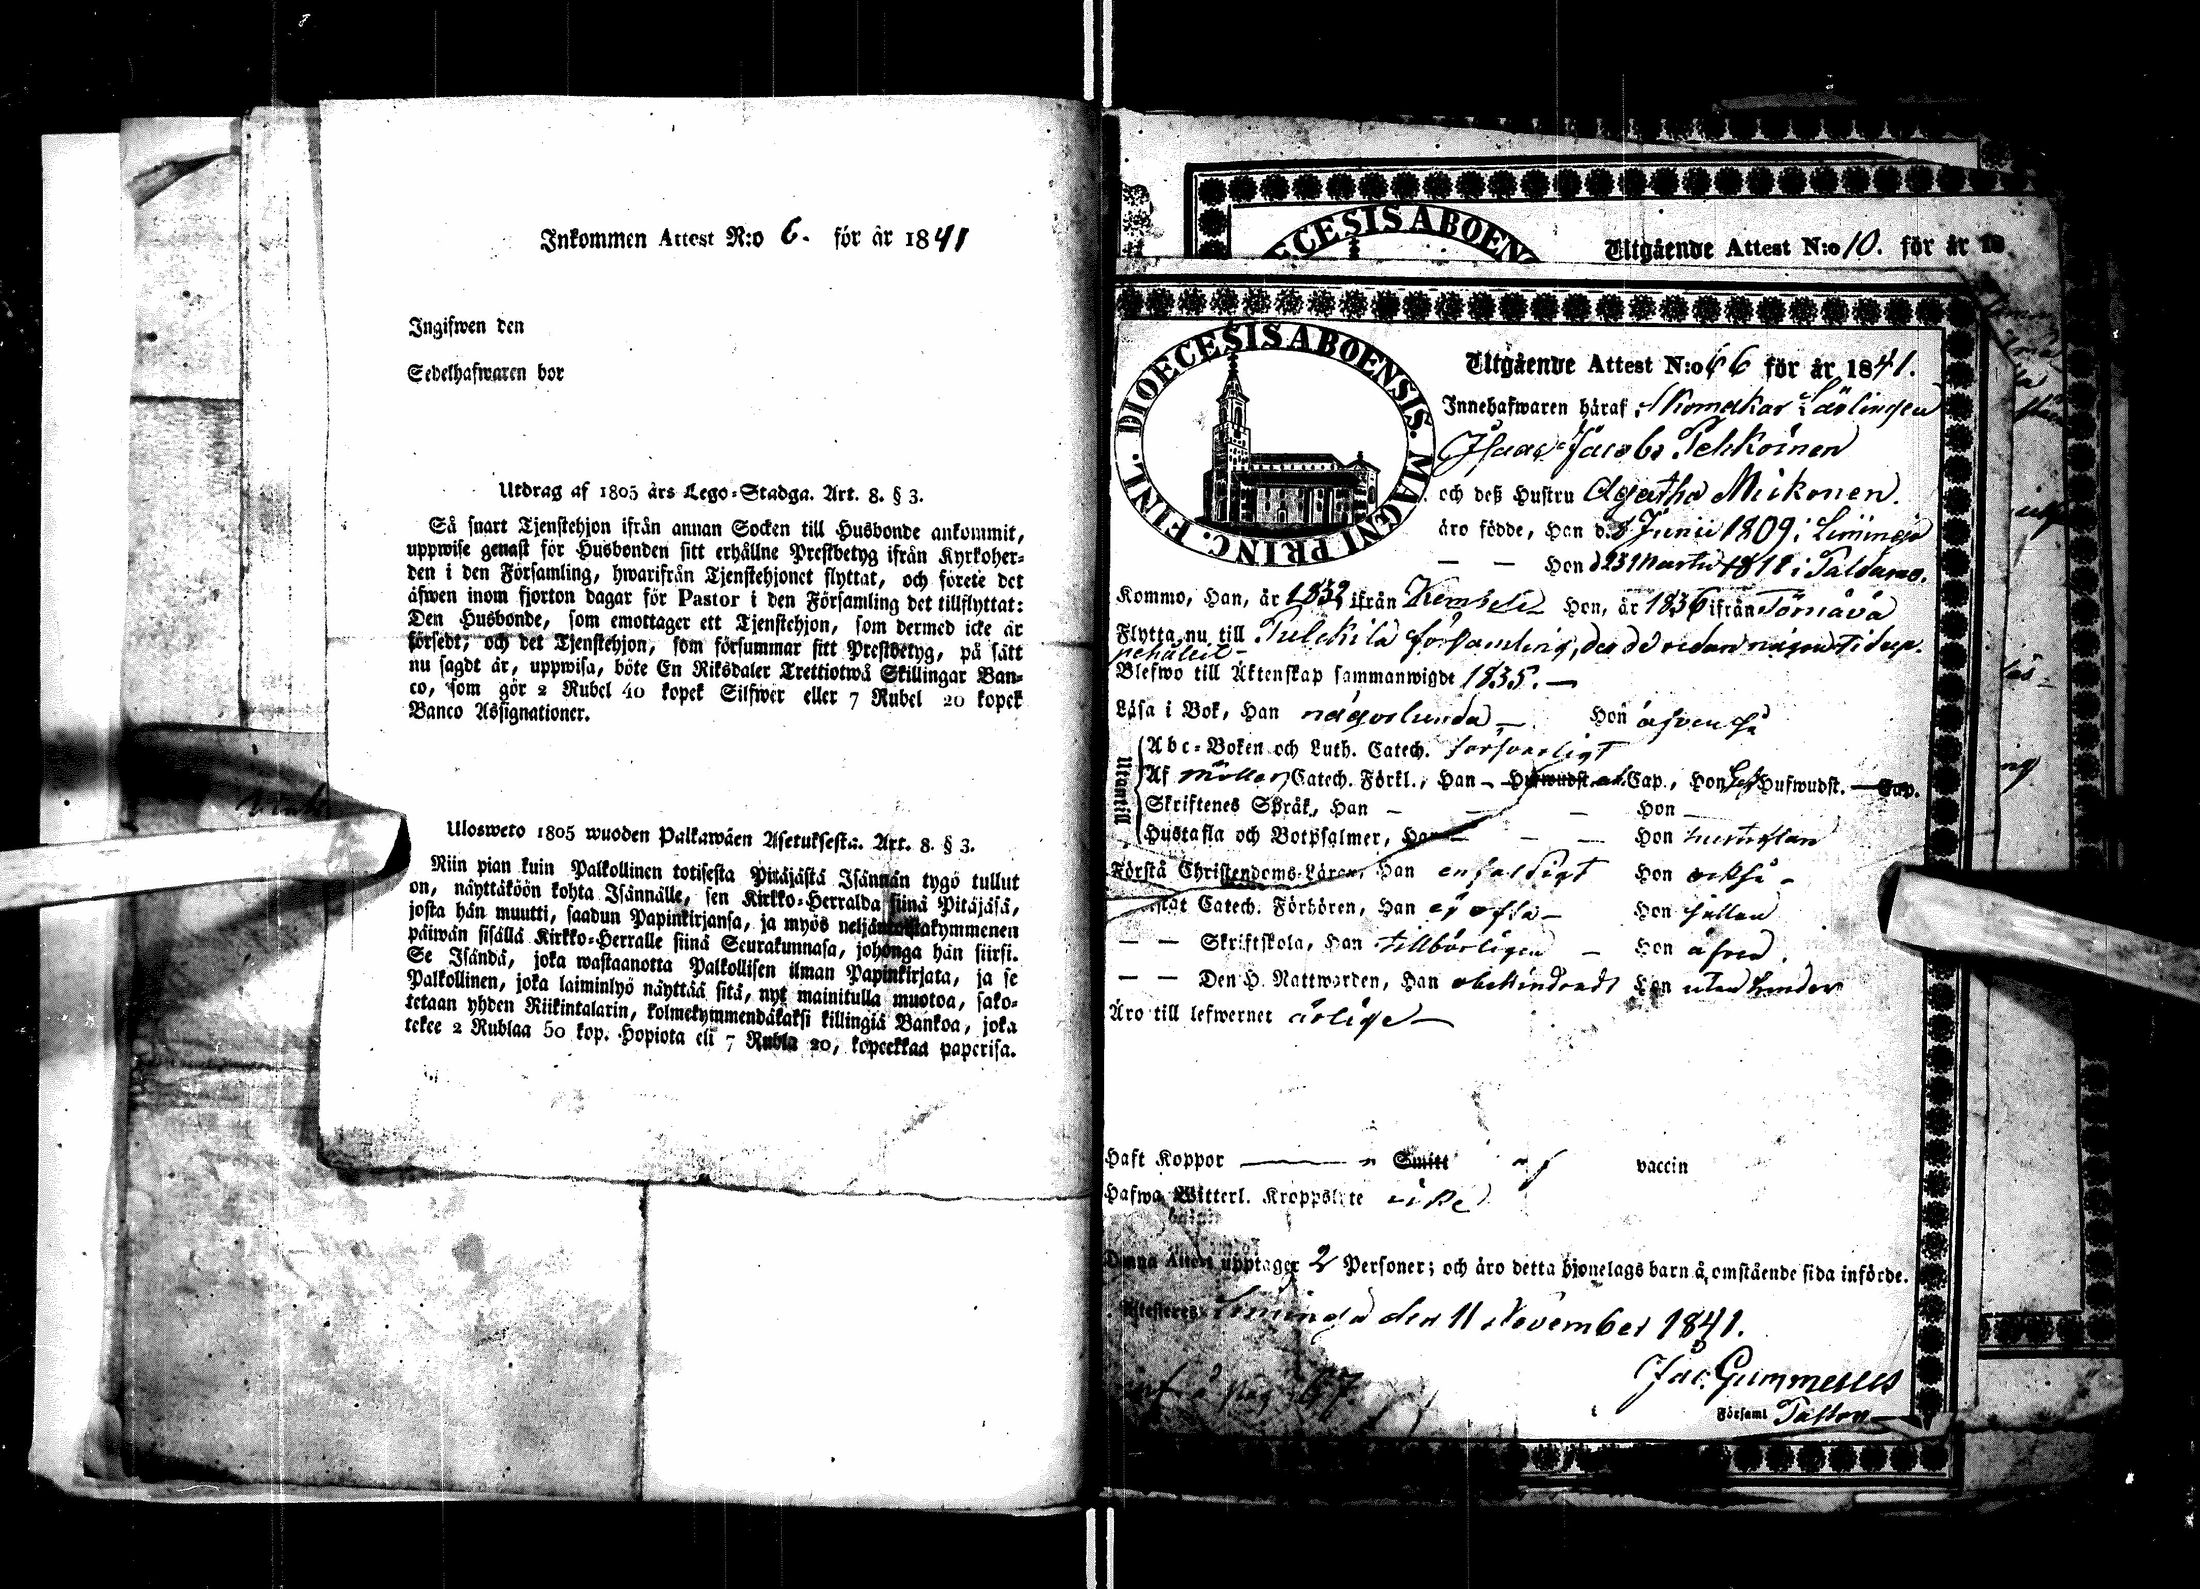 Inkommen Attest N:o 6. för år 1841
Ingifwen den
Sedelhafwaren bor
Utdrag af 1805 års Lego-Stadga. Art. 8. § 3.
Så snart Tjenstehjon ifrån annan Socken till Husbonde ankommit,
uppwise genast för Husbonden sitt erhållne Prestbetyg ifrån Kyrkoher-
den i den Församling, hwarifrån Tjenstehjonet flyttat, och förete det
äfwen inom fjorton dagar för Pastor i den Församling det tillflyttat:
Den Husbonde, som emottager ett Tjenstehjon, som dermed icke är
försedt, och det Tjenstehjon, som försummar sitt Prestbetyg, på sätt
nu sagdt är, uppwisa, böte En Riksdaler Trettiotwå Skillingar Ban-
co, som gör 2 Rubel 40 kopek Silfwer eller 7 Rubel 20 kopek
Banco Assignationer.
Ulosweto 1805 wuoden Palkawäen Asetuksesta. Art. 8. § 3.
Niin pian kuin Palkollinen toisesta Pitäjästä Isännän tygö tullut
on, näyttäköön kohta Isännälle, sen Kirkko-Herralda siinä Pitäjäsä,
josta hän muutti, saadun Papinkirjansa, ja myös neljäntoistakymmenen
päiwän sisällä Kirkko-Herralle siinä Seurakunnasa, johonga hän siirsi.
Se Isändä, joka wastaanotta Palkollisen ilman Papinkirjata, ja se
Palkollinen, joka laiminlyö näyttää sitä, nyt mainitulla muotoa, sako-
tetaan yhden Riikintalarin, kolmekymmendäkaksi killingiä Bankoa, joka
tekee 2 Rublaa 50 kop. Hopiota eli 7 Rubla 20, kopeekkaa paperisa.
ECESIS ABOEN
Utgående Attest N:o 10. för år 18
DIOECESIS ABOENSIS. MAGNI PRINC. FINL.
Utgående Attest N:o 66 för år 1841.
Innehafwaren häraf Skomakar Lärlingen
Isaac Jacobs Pehkoinen
och deß Hustru Agatha Mickonen.
äro födde, Han d. 8 Junii 1809 i Limingo
— — Hon d 23 Martii 1818 i Paldamo.
Kommo, Han, år 1832 ifrån Kembele Hon, år 1836 ifrån Törnävä
Flytta nu till Pulckila församling, der de redan någon tid up-
pehållit
Blefwo till Äktenskap sammanwigde 1835. —
Läsa i Bok, Han någorlunda — Hon äfven så
Utantill
Abc-Boken och Luth. Catech. försvarligt
Af Möllers Catech. Förkl., Han — Hufwudst. Cap., Hon Hufwudst. — Cap.
Skriftenes Språk, Han — — — Hon —
Hustafla och Botpsalmer, Han — — — Hon hustaflan
Förstå Christendoms-Läran, Han enfaldigt Hon också —
Catech. Förhören, Han ej ofta — Hon sällan
— — Skriftskola, Han tillbörligen — Hon äfven.
— — Den H. Nattwarden, Han obehindradt Hon utan hinder
Äro till lefwernet ärlige —
Haft Koppor ——— Smitt af vaccin
Hafwa Witterl. Kroppslyte icke
Denna Attest upptager 2 Personer; och äro detta hjonelags barn å omstående sida införde.
Attesteres: Limingo den 11 November 1841.
Jac. Gummerus
Förſaml Pastor